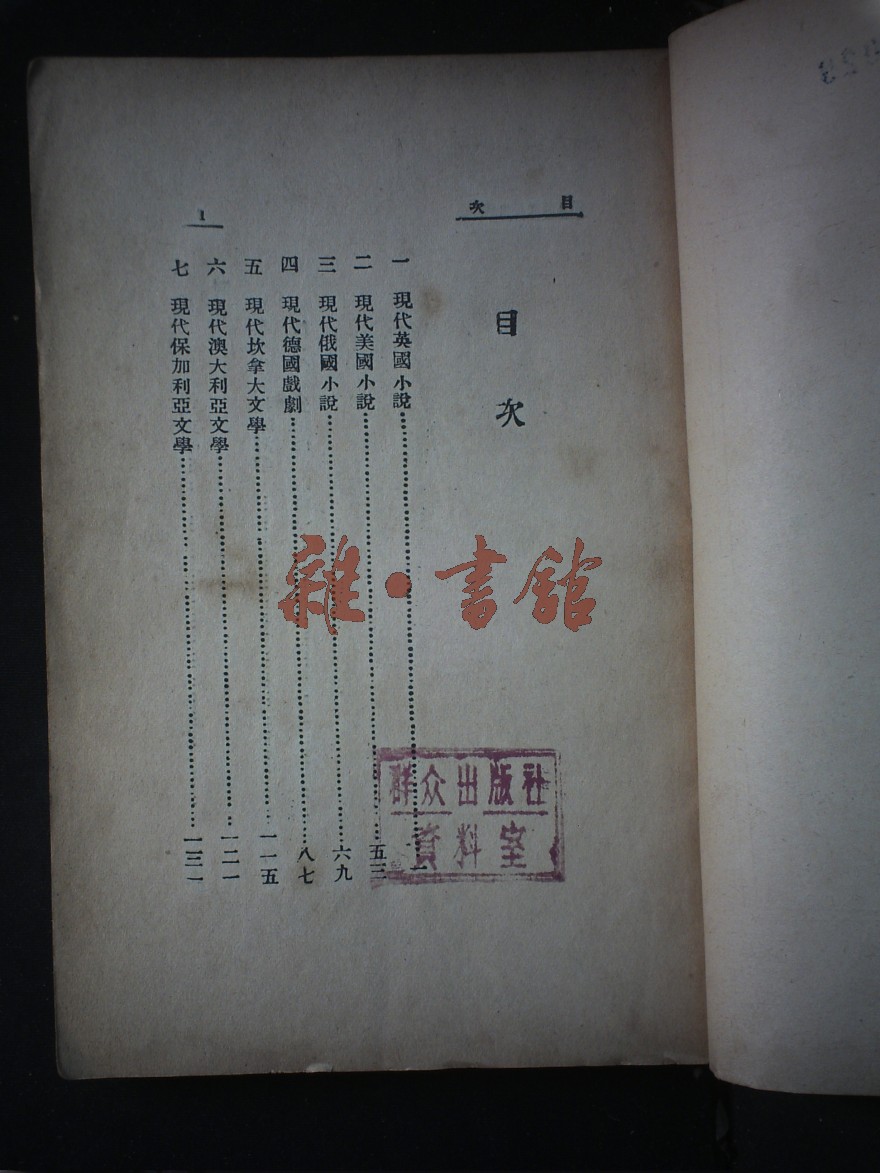 目次
目次
一 現代英國小說……一
二 現代美國小說……五三
三 現代俄國小說……六九
四 現代德國戲劇……八七
五 現代坎拿大文學……一一五
六 現代澳大利亞文學……一二一
七 現代保加利亞文學……一三一
1
雜·書館
群众出版社
資料室